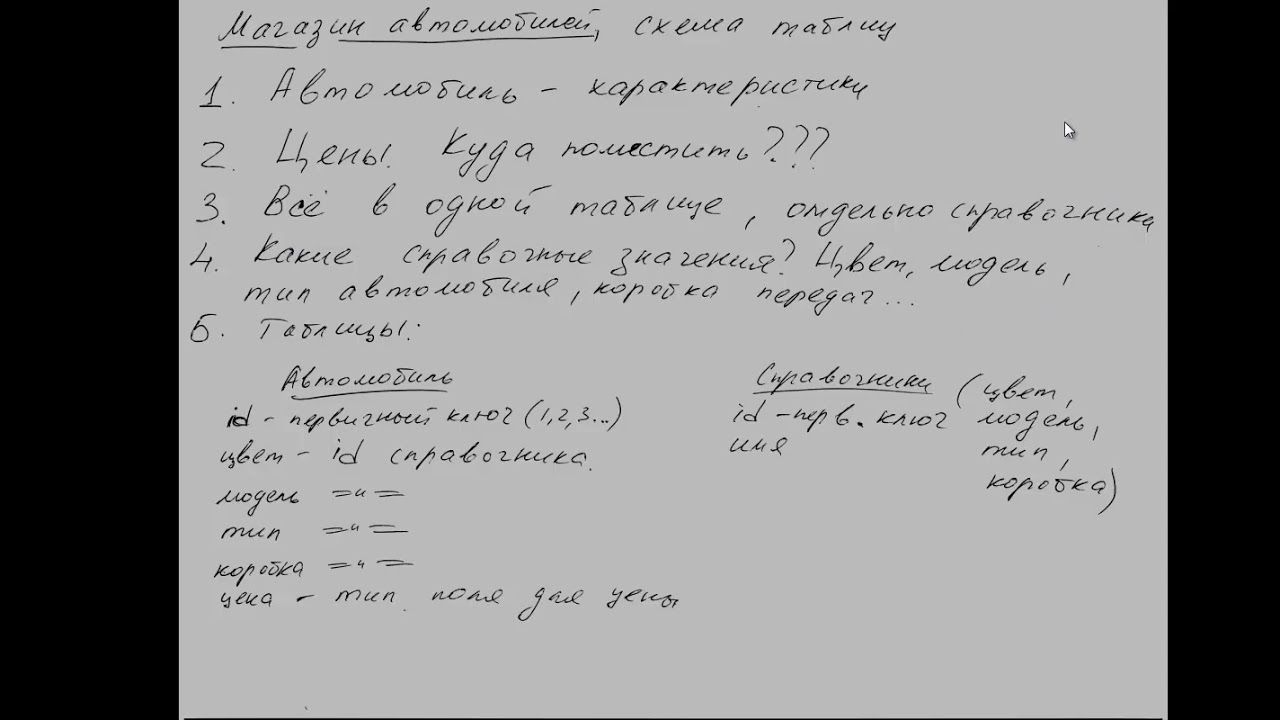 Магазин автомобилей, схема таблиц
1. Автомобиль - характеристики
2. Цены. Куда поместить???
3. Всё в одной таблице, отдельно справочники
4. Какие справочные значения? Цвет, модель,
тип автомобиля, коробка передач...
5. Таблицы:
Автомобиль
id - первичный ключ (1,2,3...)
цвет - id справочника.
модель =〃=
тип =〃=
коробка =〃=
цена - тип поля для цены
Справочники (цвет,
id - перв. ключ модель,
имя тип,
коробка)